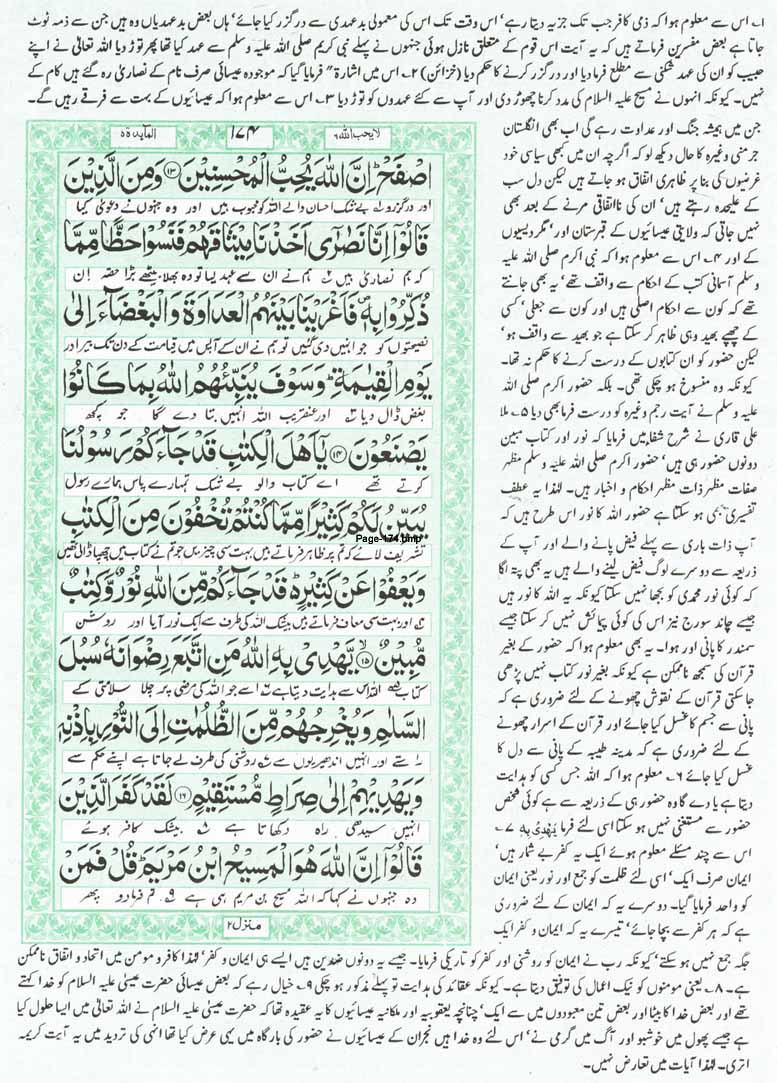 ۱؎ اس سے معلوم ہوا کہ ذمی کافر جب تک جزیہ دیتا رہے' اس وقت تک اس کی معمولی بدعہدی سے درگزر کیا جائے' ہاں بعض بدعہدیاں وہ ہیں جن سے ذمہ ٹوٹ
جاتا ہے بعض مفسرین فرماتے ہیں کہ یہ آیت اس قوم کے متعلق نازل ہوئی جنہوں نے پہلے نبی کریم صلی اللہ علیہ وسلم سے عہد کیا تھا پھر توڑ دیا اللہ تعالیٰ نے اپنے
حبیب کو ان کی عہد شکنی سے مطلع فرما دیا اور درگزر کرنے کا حکم دیا (خزائن) ۲؎ اس میں اشارۃً فرمایا گیا کہ موجودہ عیسائی صرف نام کے نصاریٰ رہ گئے ہیں کام کے
نہیں۔ کیونکہ انہوں نے مسیح علیہ السلام کی مدد کرنا چھوڑ دی اور آپ سے کئے عہدوں کو توڑ دیا ۳؎ اس سے معلوم ہوا کہ عیسائیوں کے بہت سے فرقے رہیں گے۔
جن میں ہمیشہ جنگ اور عداوت رہے گی اب بھی انگلستان
جرمنی وغیرہ کا حال دیکھ لو کہ اگرچہ ان میں کبھی سیاسی خود
غرضیوں کی بنا پر ظاہری اتفاق ہو جاتے ہیں لیکن دل سب
کے علیحدہ رہتے ہیں' ان کی نااتفاقی مرنے کے بعد بھی
نہیں جاتی کہ ولایتی عیسائیوں کے قبرستان اور' مگر دیسیوں
کے اور ۴؎ اس سے معلوم ہوا کہ نبی اکرم صلی اللہ علیہ
وسلم آسمانی کتب کے احکام سے واقف تھے' یہ بھی جانتے
تھے کہ کون سے احکام اصلی ہیں اور کون سے جعلی' کسی
کے چھپے بھید وہی ظاہر کر سکتا ہے جو بھید سے واقف ہو'
لیکن حضور کو ان کتابوں کے درست کرنے کا حکم نہ تھا۔
کیونکہ وہ منسوخ ہو چکی تھی۔ بلکہ حضور اکرم صلی اللہ
علیہ وسلم نے آیت رجم وغیرہ کو درست فرما بھی دیا ۵؎ ملا
علی قاری نے شرح شفا میں فرمایا کہ نور اور کتاب مبین
دونوں حضور ہی ہیں' حضور اکرم صلی اللہ علیہ وسلم مظہر
صفات مظہر ذات مظہر احکام و اخبار ہیں۔ لہٰذا یہ عطف
تفسیری بھی ہو سکتا ہے حضور اللہ کا نور اس طرح ہیں کہ
آپ ذات باری سے پہلے فیض پانے والے اور آپ کے
ذریعہ سے دوسرے لوگ فیض لینے والے ہیں یہ بھی پتہ لگا
کہ کوئی نور محمدی کو بجھا نہیں سکتا کیونکہ یہ اللہ کا نور ہیں
جیسے چاند سورج نیز اس کی کوئی پیمائش نہیں کر سکتا جیسے
سمندر کا پانی اور ہوا۔ یہ بھی معلوم ہوا کہ حضور کے بغیر
قرآن کی سمجھ ناممکن ہے کیونکہ بغیر نور کتاب نہیں پڑھی
جا سکتی قرآن کے نقوش چھونے کے لئے ضروری ہے کہ
پانی سے جسم کا غسل کیا جائے اور قرآن کے اسرار چھونے
کے لئے ضروری ہے کہ مدینہ طیبہ کے پانی سے دل کا
غسل کیا جائے ۶؎ معلوم ہوا کہ اللہ جس کسی کو ہدایت
دیتا ہے یا دے گا وہ حضور ہی کے ذریعہ سے ہے کوئی شخص
حضور سے مستغنی نہیں ہو سکتا اسی لئے فرمایا یَهْدِیْ بِهِ ۷؎
اس سے چند مسئلے معلوم ہوئے ایک یہ کفر بے شمار ہیں'
ایمان صرف ایک' اسی لئے ظلمت کو جمع اور نور یعنی ایمان
کو واحد فرمایا گیا۔ دوسرے یہ کہ ایمان کے لئے ضروری
ہے کہ ہر کفر سے بچا جائے' تیسرے یہ کہ ایمان و کفر ایک
لا یحب اللہ ۶
۱۷۴
المآئدۃ ۵
اصْفَحْ ؕ اِنَّ اللّٰهَ یُحِبُّ الْمُحْسِنِیْنَ ﴿۱۳﴾ وَ مِنَ الَّذِیْنَ
اور درگزرو ۱؎ بے شک احسان والے اللہ کو محبوب ہیں اور وہ جنہوں نے دعویٰ کیا
قَالُوْۤا اِنَّا نَصٰرٰۤی اَخَذْنَا مِیْثَاقَهُمْ فَنَسُوْا حَظًّا مِّمَّا
کہ ہم نصاریٰ ہیں ۲؎ ہم نے ان سے عہد لیا تو وہ بھلا بیٹھے بڑا حصہ ان
ذُكِّرُوْا بِهٖ ۪ فَاَغْرَیْنَا بَیْنَهُمُ الْعَدَاوَةَ وَ الْبَغْضَآءَ اِلٰی
نصیحتوں کا جو انہیں دی گئیں تو ہم نے ان کے آپس میں قیامت کے دن تک بیر اور
یَوْمِ الْقِیٰمَةِ ؕ وَ سَوْفَ یُنَبِّئُهُمُ اللّٰهُ بِمَا كَانُوْا
بغض ڈال دیا ۳؎ اور عنقریب اللہ انہیں بتا دے گا جو کچھ
یَصْنَعُوْنَ ﴿۱۴﴾ یٰۤاَهْلَ الْكِتٰبِ قَدْ جَآءَكُمْ رَسُوْلُنَا
کرتے تھے اے کتاب والو بے شک تمہارے پاس ہمارے یہ رسول
یُبَیِّنُ لَكُمْ كَثِیْرًا مِّمَّا كُنْتُمْ تُخْفُوْنَ مِنَ الْكِتٰبِ
Page-174.bmp
تشریف لائے کہ تم پر ظاہر فرماتے ہیں بہت سی چیزیں جو تم نے کتاب میں چھپا ڈالی تھیں
وَ یَعْفُوْا عَنْ كَثِیْرٍ ؕ قَدْ جَآءَكُمْ مِّنَ اللّٰهِ نُوْرٌ وَّ كِتٰبٌ
۴؎ اور بہت سی معاف فرماتے ہیں بیشک اللہ کی طرف سے ایک نور آیا اور روشن
مُّبِیْنٌ ﴿۱۵﴾ یَّهْدِیْ بِهِ اللّٰهُ مَنِ اتَّبَعَ رِضْوَانَهٗ سُبُلَ
کتاب ۵؎ اللہ اس سے ہدایت دیتا ہے ۶؎ اسے جو اللہ کی مرضی پر چلا سلامتی کے
السَّلٰمِ وَ یُخْرِجُهُمْ مِّنَ الظُّلُمٰتِ اِلَی النُّوْرِ بِاِذْنِهٖ
راستے اور انہیں اندھیریوں سے ۷؎ روشنی کی طرف لے جاتا ہے اپنے حکم سے
وَ یَهْدِیْهِمْ اِلٰی صِرَاطٍ مُّسْتَقِیْمٍ ﴿۱۶﴾ لَقَدْ كَفَرَ الَّذِیْنَ
انہیں سیدھی راہ دکھاتا ہے ۸؎ بیشک کافر ہوئے
قَالُوْۤا اِنَّ اللّٰهَ هُوَ الْمَسِیْحُ ابْنُ مَرْیَمَ ؕ قُلْ فَمَنْ
وہ جنہوں نے کہا کہ اللہ مسیح بن مریم ہی ہے ۹؎ تم فرما دو پھر
منزل ۲
جگہ جمع نہیں ہو سکتے' کیونکہ رب نے ایمان کو روشنی اور کفر کو تاریکی فرمایا۔ جیسے یہ دونوں ضدین ہیں ایسے ہی ایمان و کفر' لہٰذا کافر و مومن میں اتحاد و اتفاق ناممکن
ہے۔ ۸؎ یعنی مومنوں کو نیک اعمال کی توفیق دیتا ہے۔ کیونکہ عقائد کی ہدایت تو پہلے مذکور ہو چکی ۹؎ خیال رہے کہ بعض عیسائی حضرت عیسیٰ علیہ السلام کو خدا کہتے
تھے اور بعض خدا کا بیٹا اور بعض تین معبودوں میں سے ایک' چنانچہ یعقوبیہ اور ملکانیہ عیسائیوں کا یہ عقیدہ تھا کہ حضرت عیسیٰ علیہ السلام نے اللہ تعالیٰ میں ایسا حلول کیا
ہے جیسے پھول میں خوشبو اور آگ میں گرمی نے' اس لئے وہ خدا ہیں نجران کے عیسائیوں نے حضور کی بارگاہ میں یہی عرض کیا تھا انہی کی تردید میں یہ آیت کریمہ
اتری۔ لہٰذا آیات میں تعارض نہیں۔